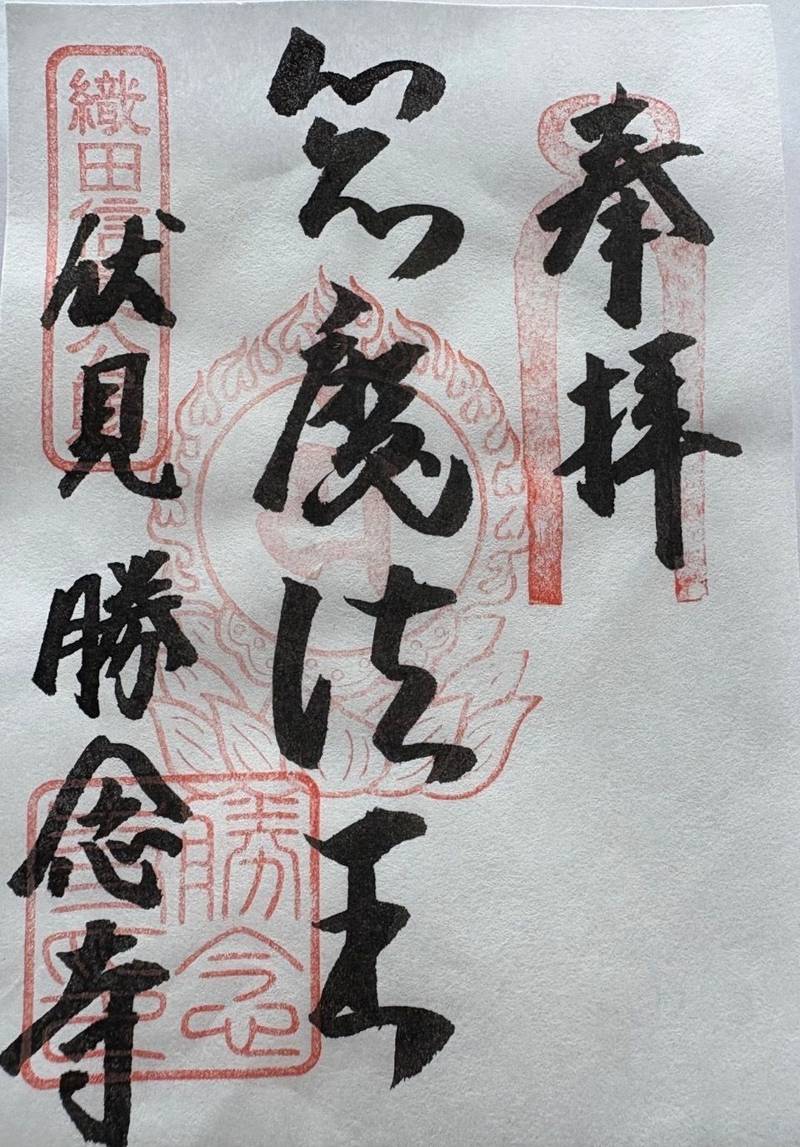 奉拝
閻魔法王
伏見 勝念寺
織田信
勝念